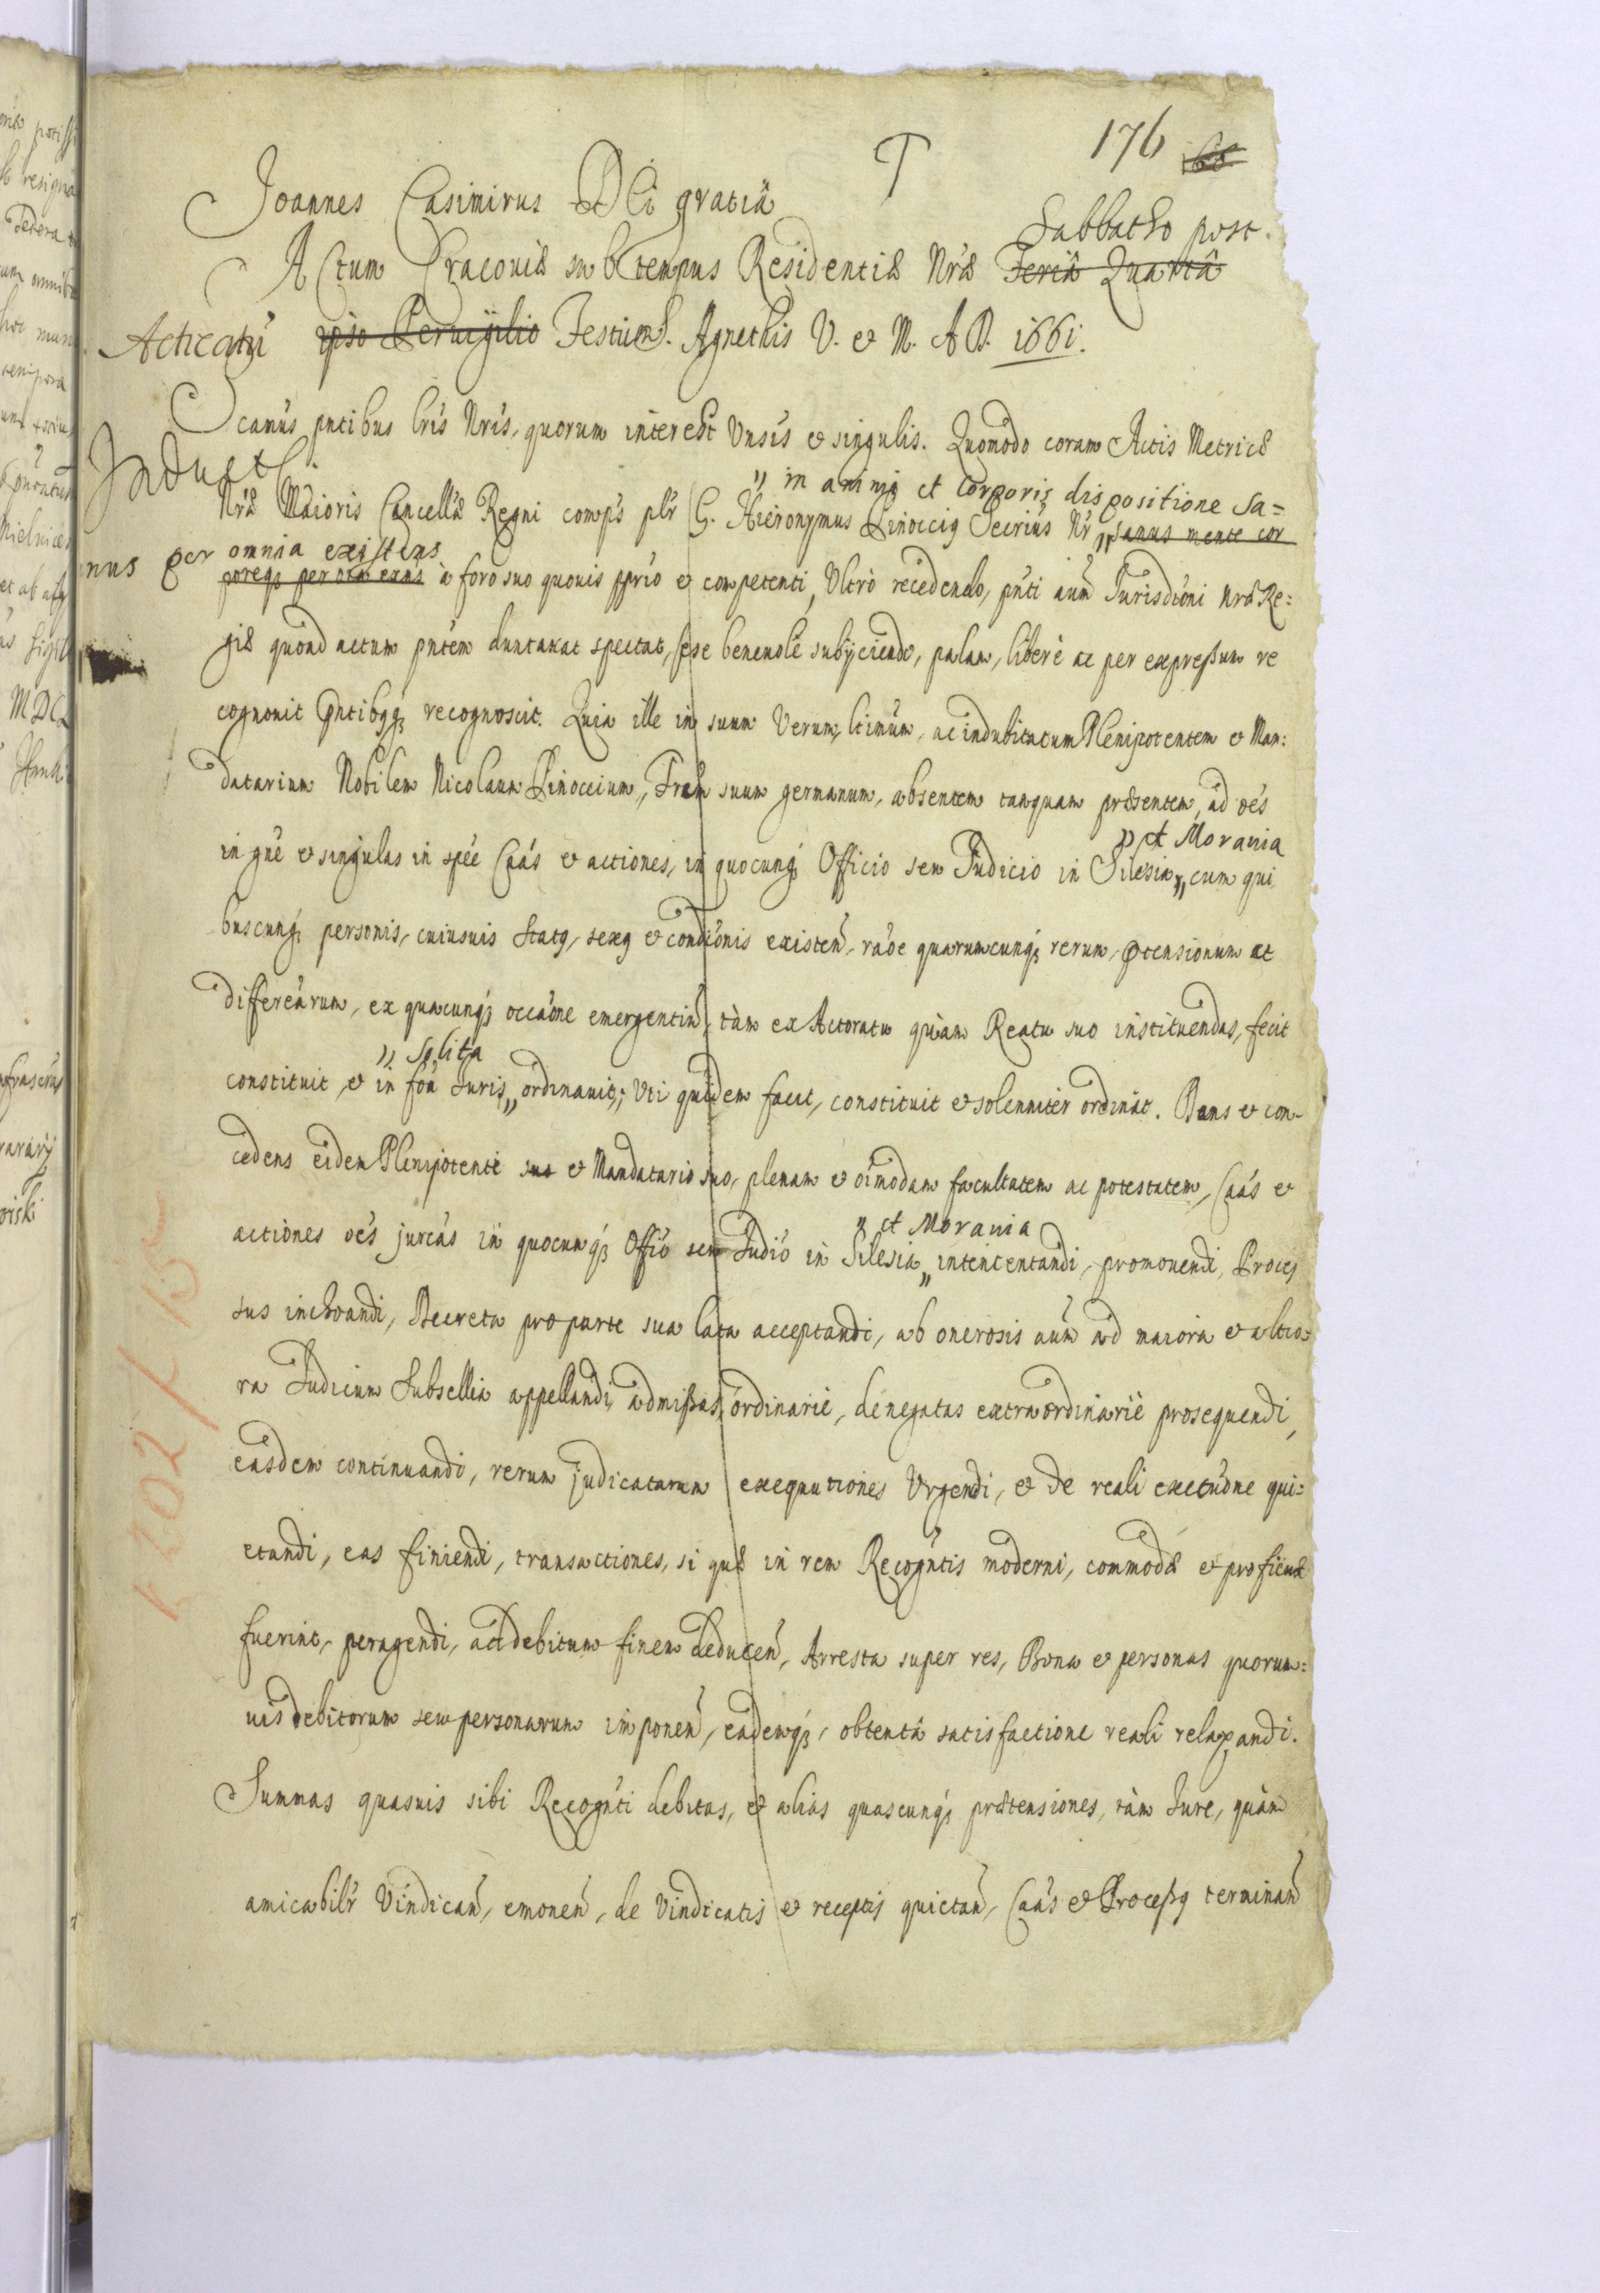 176 ~~166~~
T
Joannes Casimirus Dei gratiâ
Sabbatho post.
Actum Cracouiæ sub tempus Residentiæ Nræ ~~Feriâ Quartâ~~
Acticatū ~~ipso Peruigilio~~ Festum S. Agnethis V. et M. A D. 1661.
Induct
ocamus pntibus lris Nris, quorum interest Vnsis et singulis. Quomodo coram Actis Metricæ
„ in animi et corporis dispositione sa=
Nræ Maioris Cancellæ Regni comps plr G. Hieronymus Pinoccig Secrius Nr „ ~~sanus mente cor~~
nus per omnia existens
~~poreq; per oia exns~~ à foro suo quouis pprio et competenti, Vltrò recedendo, pnti aūm Jurisdōni Nræ Re=
giæ quoad actum pntem duntaxat spectat, sese beneuolè subijciendo, palam, liberè ac per expreßum re
cognouit pntibqq; recognoscit. Quia ille in suum Verum, ltimūm, ac indubitatum Plenipotentem et Man:
datarium Nobilem Nicolaum Pinoccium, Frem suum germanum, absentem tanquam præsentem, ad oēs
„ et Morauia
in gñe et singulas in spēe Caās et actiones, in quocunq; Officio seu Judicio in Silesia „ cum qui
buscunq; personis, cuiusuis Statq, sexq et condiōnis existeñ, raōe quarumcunq; rerum, prætensionum at
differēarum, ex quacunq; occaōne emergentiū, tàm ex Actoratu quàm Reatu suo instituendas, fecit
„ solita
constituit, et in foā Juris „ ordinauit; Vti quidem facit, constituit et solenniter ordinat. Dans et con-
cedens eidem Plenipotenti ~~suo~~ et Mandatario suo, plenam et oīmodam facultatem ac potestatem, Caās et
„ et Morauia
actiones oēs jurcās in quocunq; Offiō seu Judiō in Silesia „ intencentandi, promouendi, Proces
sus inchoandi, Decreta pro parte sua lata acceptandi, ab onerosis aūm ad maiora et altio-
ra Judicium Subsellia appellandi, admißas ordinariè, denegatas extraordinariè prosequendi,
easdem continuandi, rerum judicatarum exequutiones Vrgendi, et de reali exectūone qui=
etandi, eas finiendi, transactiones, si quæ in rem Recogntis moderni, commodæ et proficuæ
fuerint, peragendi, ad debitum finem deduceñ, Arresta super res, Bona et personas quorum=
uis debitorum seu personarum imponeñ, eademq;, obtentâ satisfactione reali relaxandi.
Summas quasuis sibi Recognti debitas, et alias quascunq; prætensiones, tàm Jure, quàm
amicabilr Vindicañ, emoneñ, de Vindicatis et receptis quietañ, Caās et Proceßq terminañ